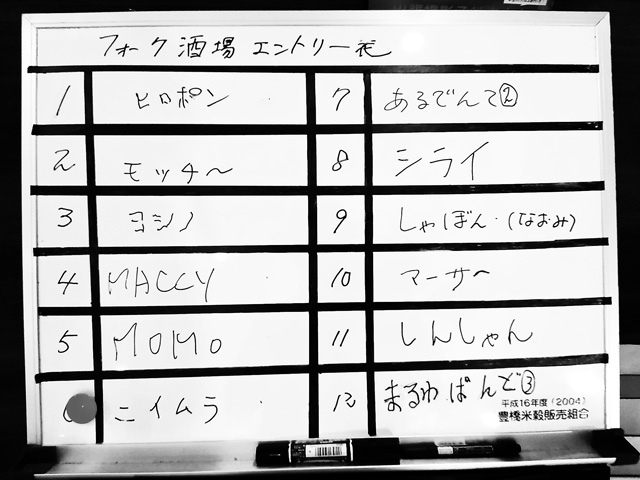 フォーク酒場 エントリー表
1 ヒロポン
2 モッチ〜
3 ヨシノ
4 MACCY
5 MOMO
6 ニイムラ
7 あるでんて②
8 シライ
9 しゃぼん・(なおみ)
10 マーサ〜
11 しんしゃん
12 まるわばんど③
平成16年度(2004)
豊橋米穀販売組合